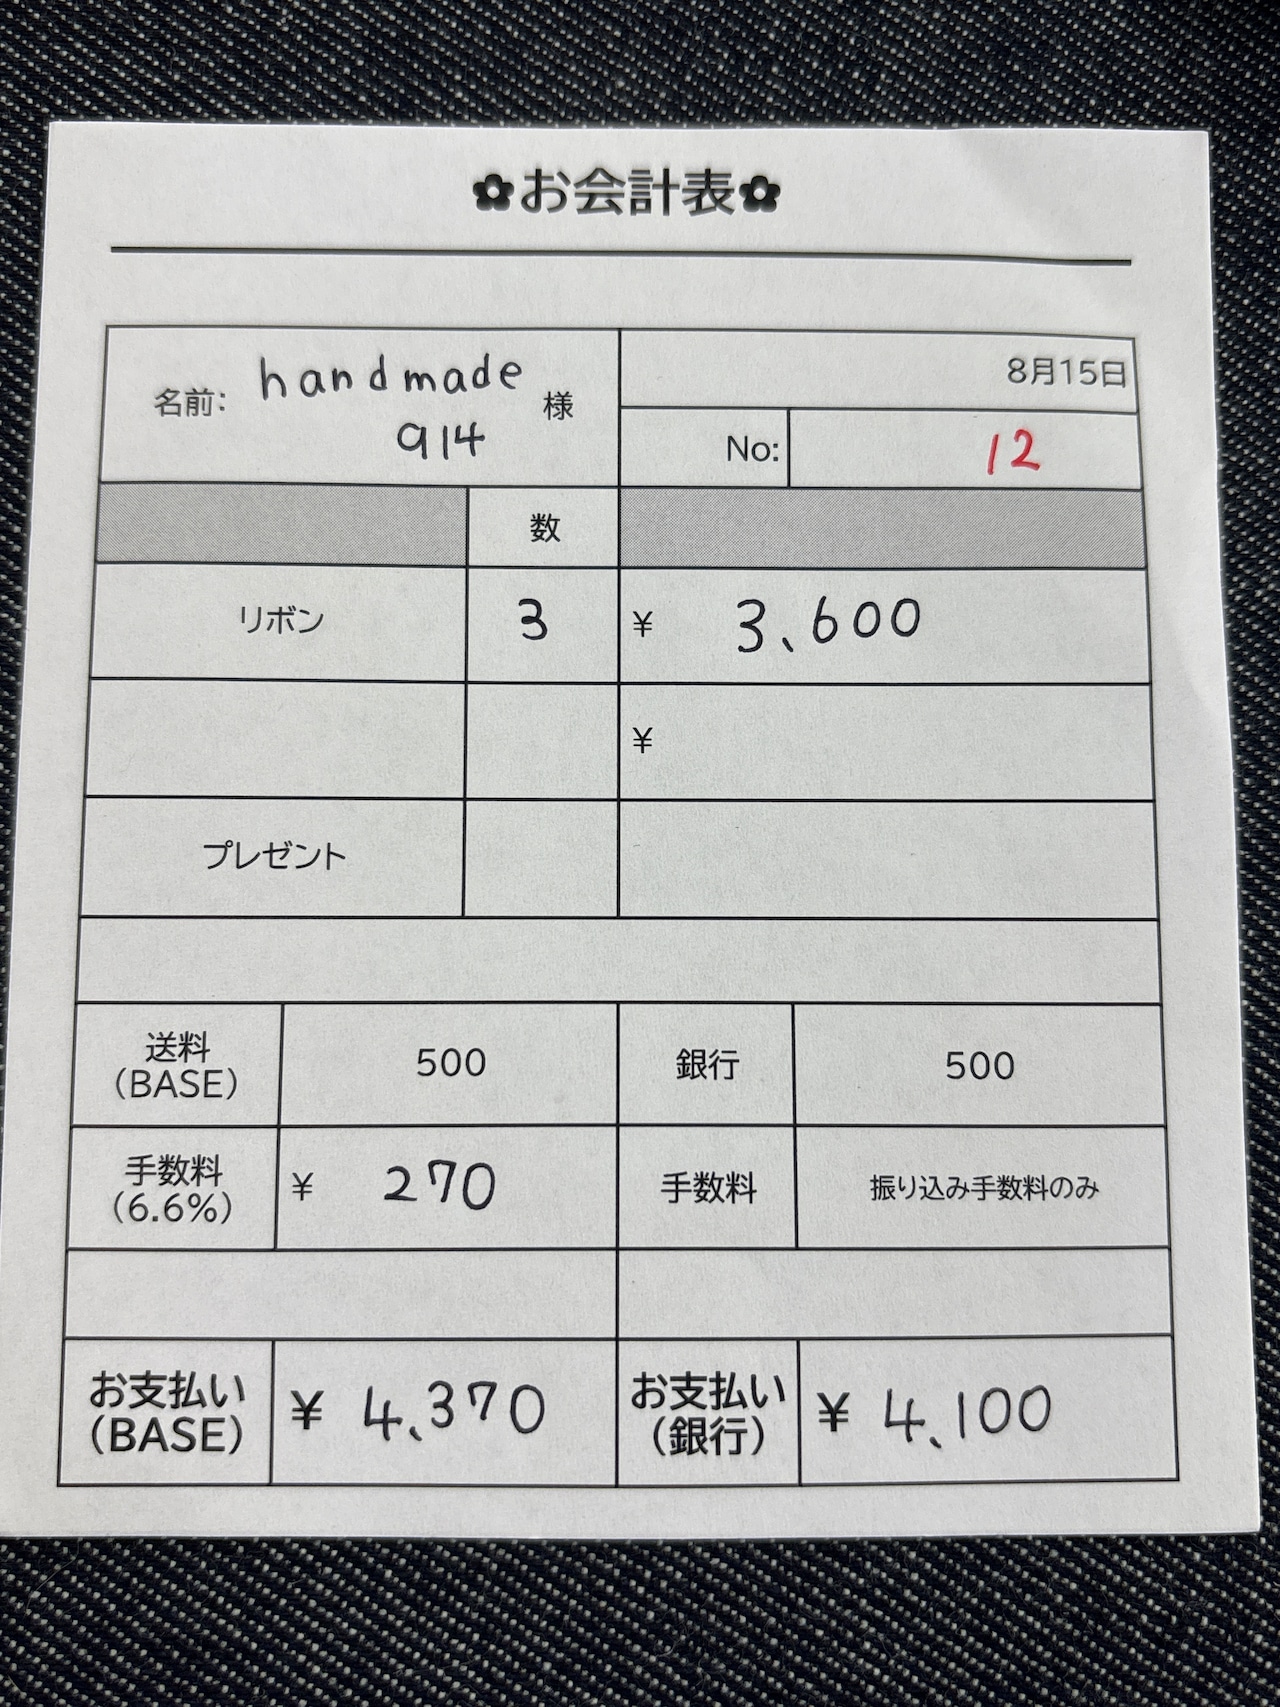 ✿お会計表✿
名前: handmade 914 様
8月15日
No: 12
数
リボン 3 ¥ 3,600
¥
プレゼント
送料(BASE) 500 銀行 500
手数料(6.6%) ¥ 270 手数料 振り込み手数料のみ
お支払い(BASE) ¥ 4,370 お支払い(銀行) ¥ 4,100